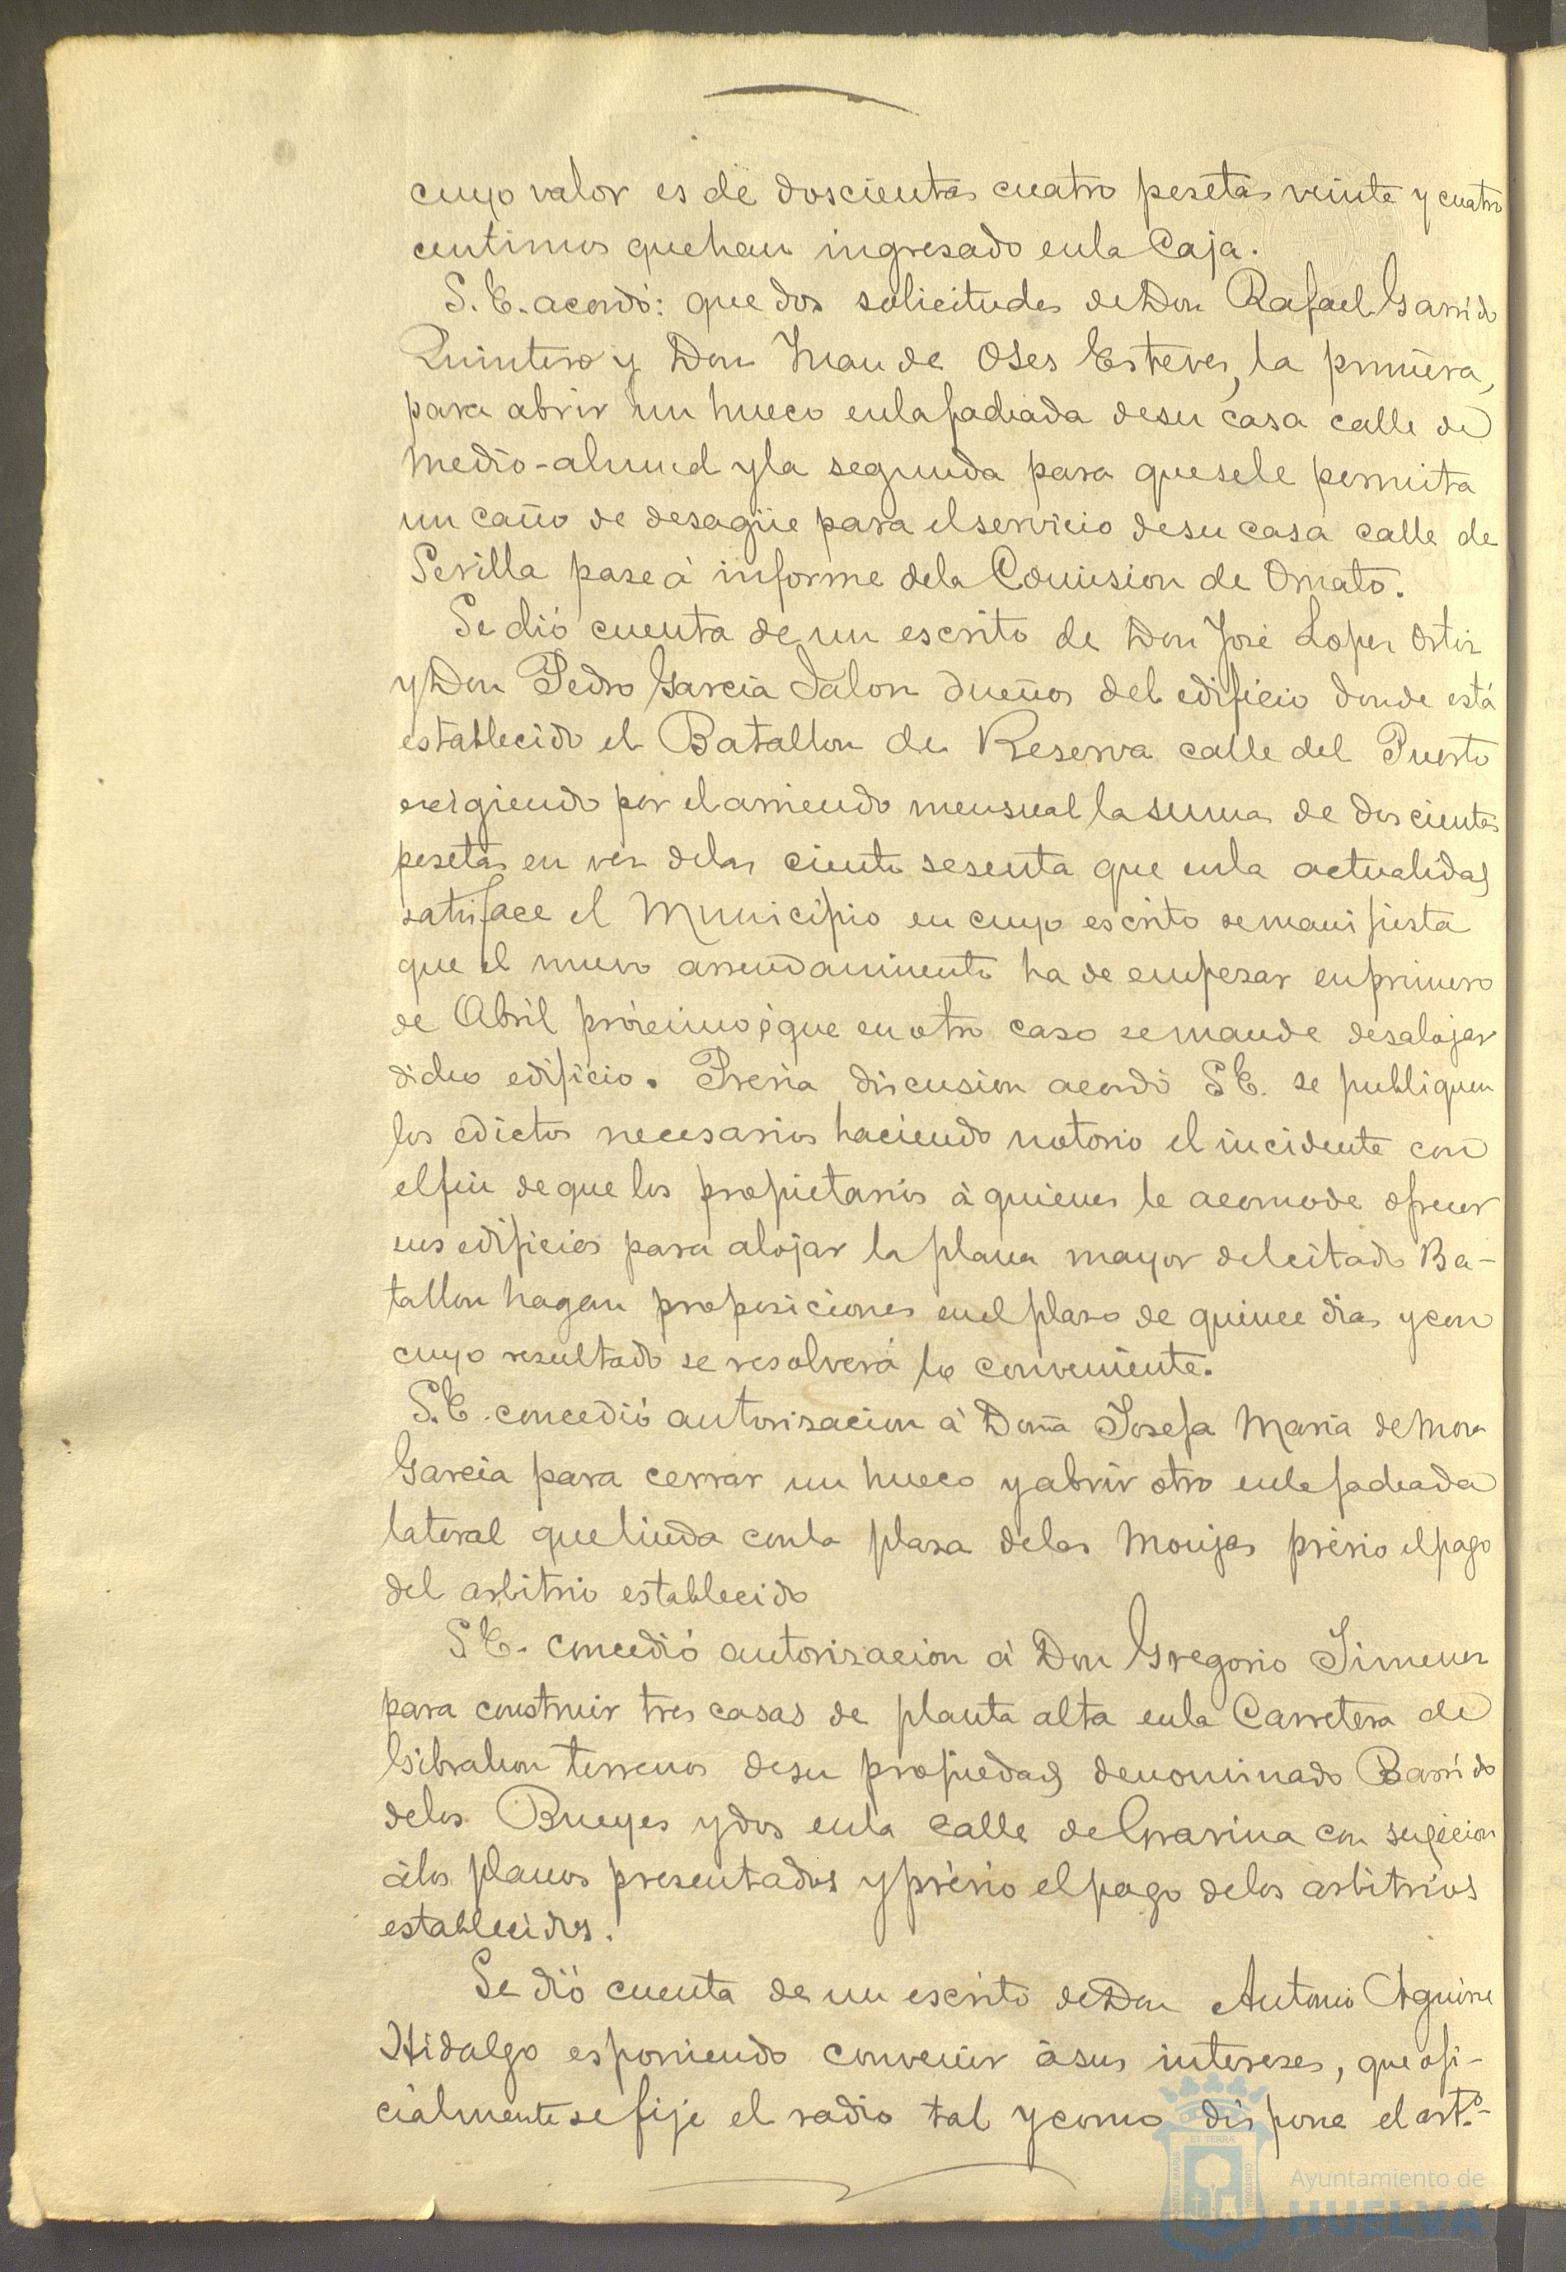 cuyo valor es de doscientas cuatro pesetas veinte y cuatro
centimos que han ingresado en la Caja.
S. E. acordó: que dos solicitudes de Don Rafael Garrido
Quintero y Don Juan de Oses Esteves, la primera,
para abrir un hueco en la fachada de su casa calle de
Medio-almud y la segunda para que se le permita
un caño de desagüe para el servicio de su casa calle de
Sevilla pase á informe de la Comision de Ornato.
Se dió cuenta de un escrito de Don José Lopez Ortiz
y Don Pedro Garcia Jalon dueños del edificio donde está
establecido el Batallon de Reserva calle del Puerto
exigiendo por el arriendo mensual la suma de doscientas
pesetas en vez de las ciento sesenta que en la actualidad
satisface el Municipio en cuyo escrito se manifiesta
que el nuevo arrendamiento ha de empezar en primero
de Abril próximo é que en otro caso se mande desalojar
dicho edificio. Prévia discusion acordó S E. se publiquen
los edictos necesarios haciendo notorio el incidente con
el fin de que los propietarios á quienes le acomode ofrecer
sus edificios para alojar la plana mayor del citado Ba-
tallon hagan proposiciones en el plazo de quince dias y con
cuyo resultado se resolverá lo conveniente.
S. E. concedió autorizacion á Doña Josefa Maria de Mora
Garcia para cerrar un hueco y abrir otro en la fachada
lateral que linda con la plaza de las Monjas prévio el pago
del arbitrio establecido
S E. concedió autorizacion á Don Gregorio Jimenez
para construir tres casas de planta alta en la Carretera de
Gibraleon terrenos de su propiedad denominado Barrido
de los Bueyes y dos en la calle de Gravina con sugecion
á los planos presentados y prévio el pago de los arbitrios
establecidos.
Se dió cuenta de un escrito de Don Antonio Aguirre
Hidalgo esponiendo convenir á sus intereses, que ofi-
cialmente se fije el radio tal y como dispone el artº.
Ayuntamiento de
HUELVA